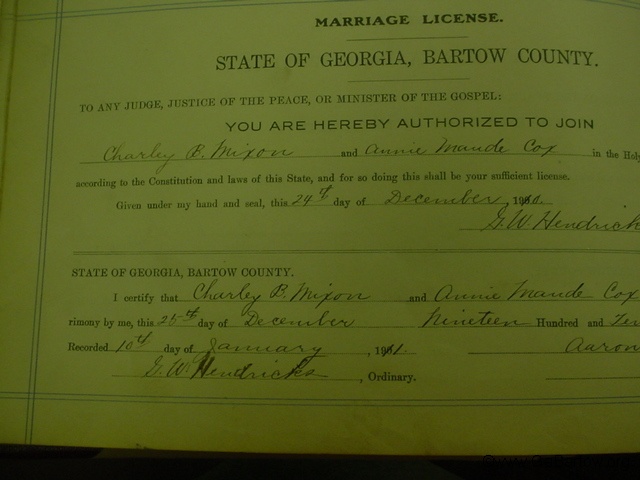 MARRIAGE LICENSE.
STATE OF GEORGIA, BARTOW COUNTY.
TO ANY JUDGE, JUSTICE OF THE PEACE, OR MINISTER OF THE GOSPEL:
YOU ARE HEREBY AUTHORIZED TO JOIN
Charley B. Mixon and Annie Maude Cox in the Holy
according to the Constitution and laws of this State, and for so doing this shall be your sufficient license.
Given under my hand and seal, this 24th day of December, 1910.
G. W. Hendrick
STATE OF GEORGIA, BARTOW COUNTY.
I certify that Charley B. Mixon and Annie Maude Cox
rimony by me, this 25th day of December Nineteen Hundred and Ten
Recorded 10th day of January, 1911. Aaron
G. W. Hendricks, Ordinary.